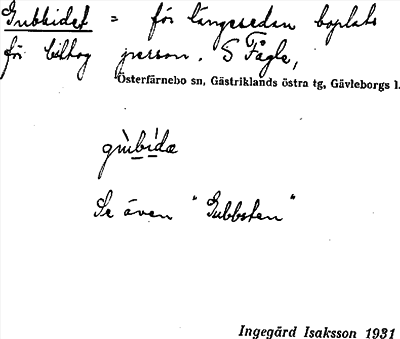 Gubbidet = för längesedan boplats
för biltog person. S Fågle,
Österfärnebo sn, Gästriklands östra tg, Gävleborgs l.
gùbídæ
Se även "Gubbsten"
Ingegärd Isaksson 1931